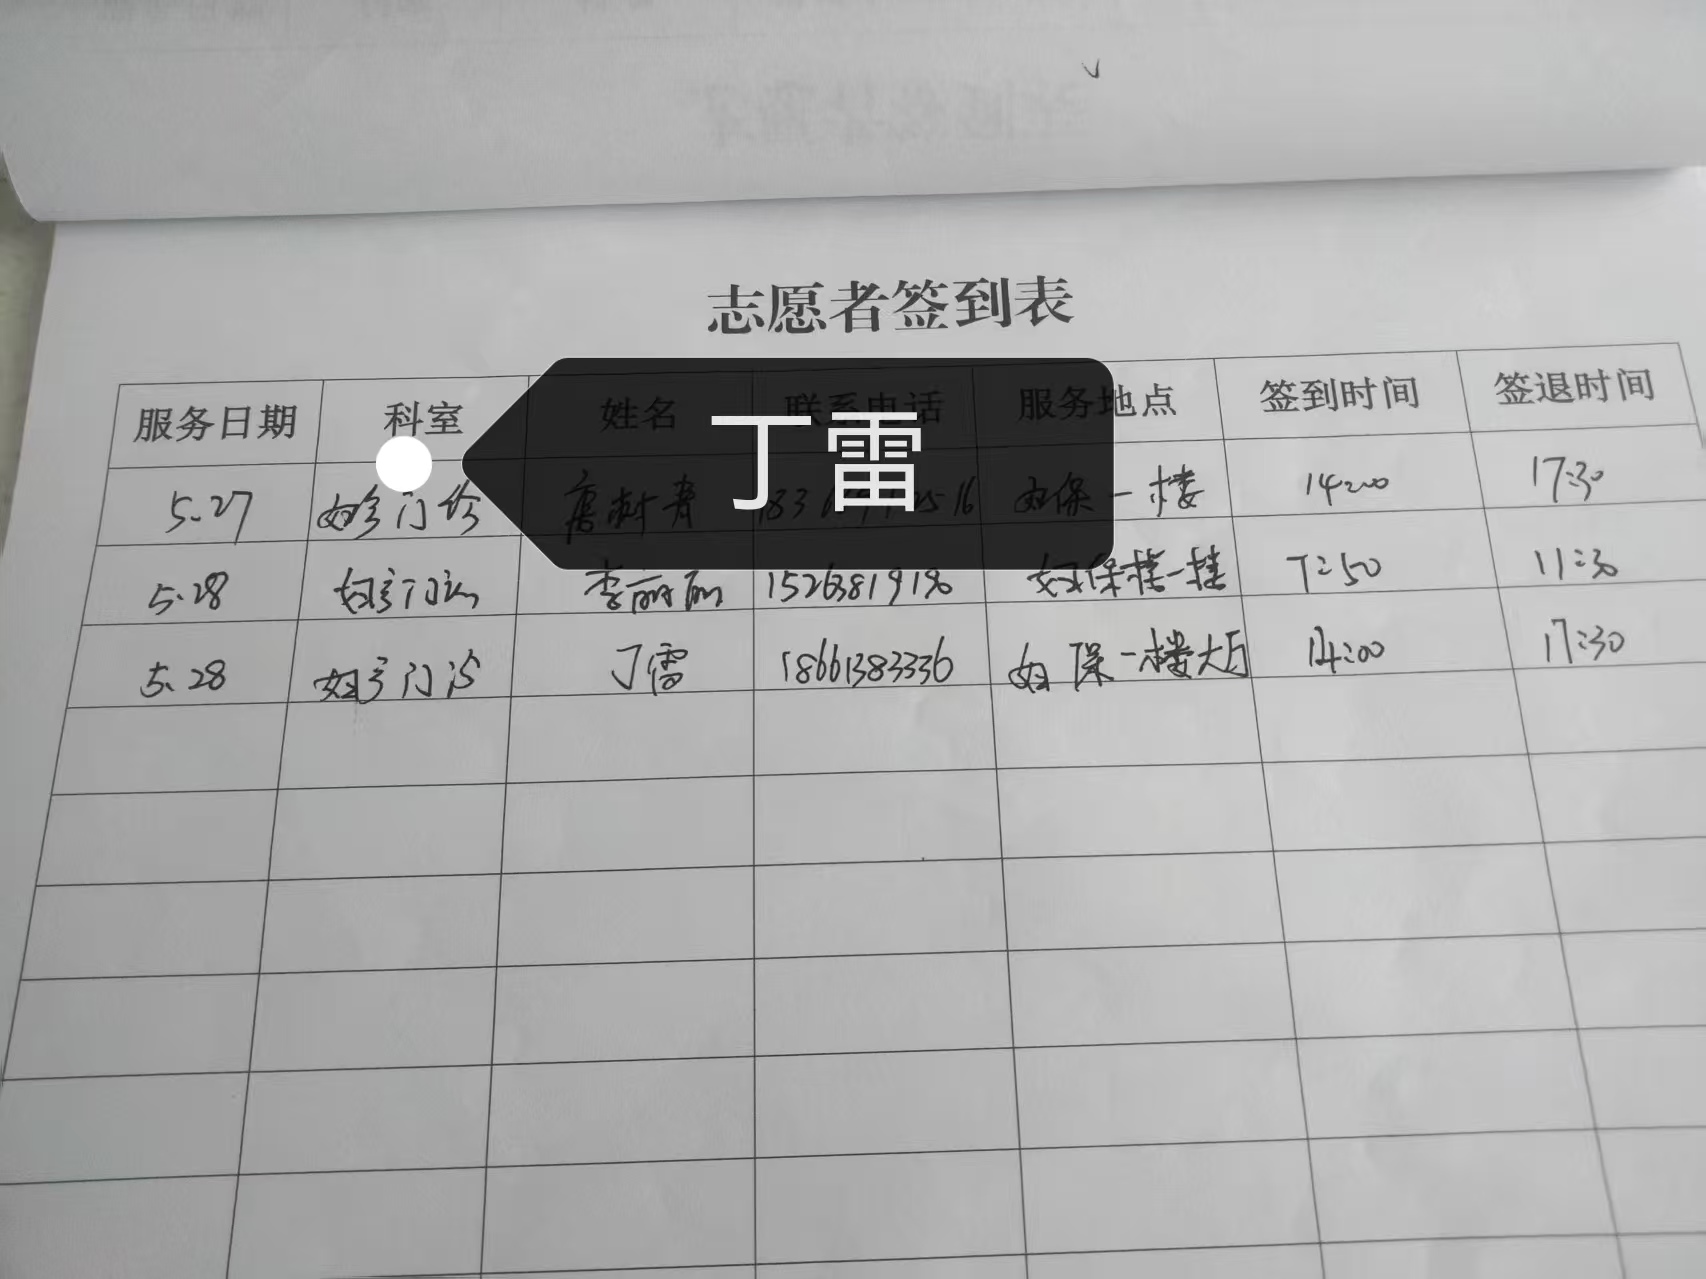 志愿者签到表
服务日期 科室 姓名 联系电话 服务地点 签到时间 签退时间
丁雷
5.27 妇诊门诊 妇保一楼 14:00 17:30
5.28 妇诊门诊 李丽丽 15263819196 妇保楼一楼 7:50 11:30
5.28 妇诊门诊 丁雷 18661383336 妇保一楼大厅 14:00 17:30